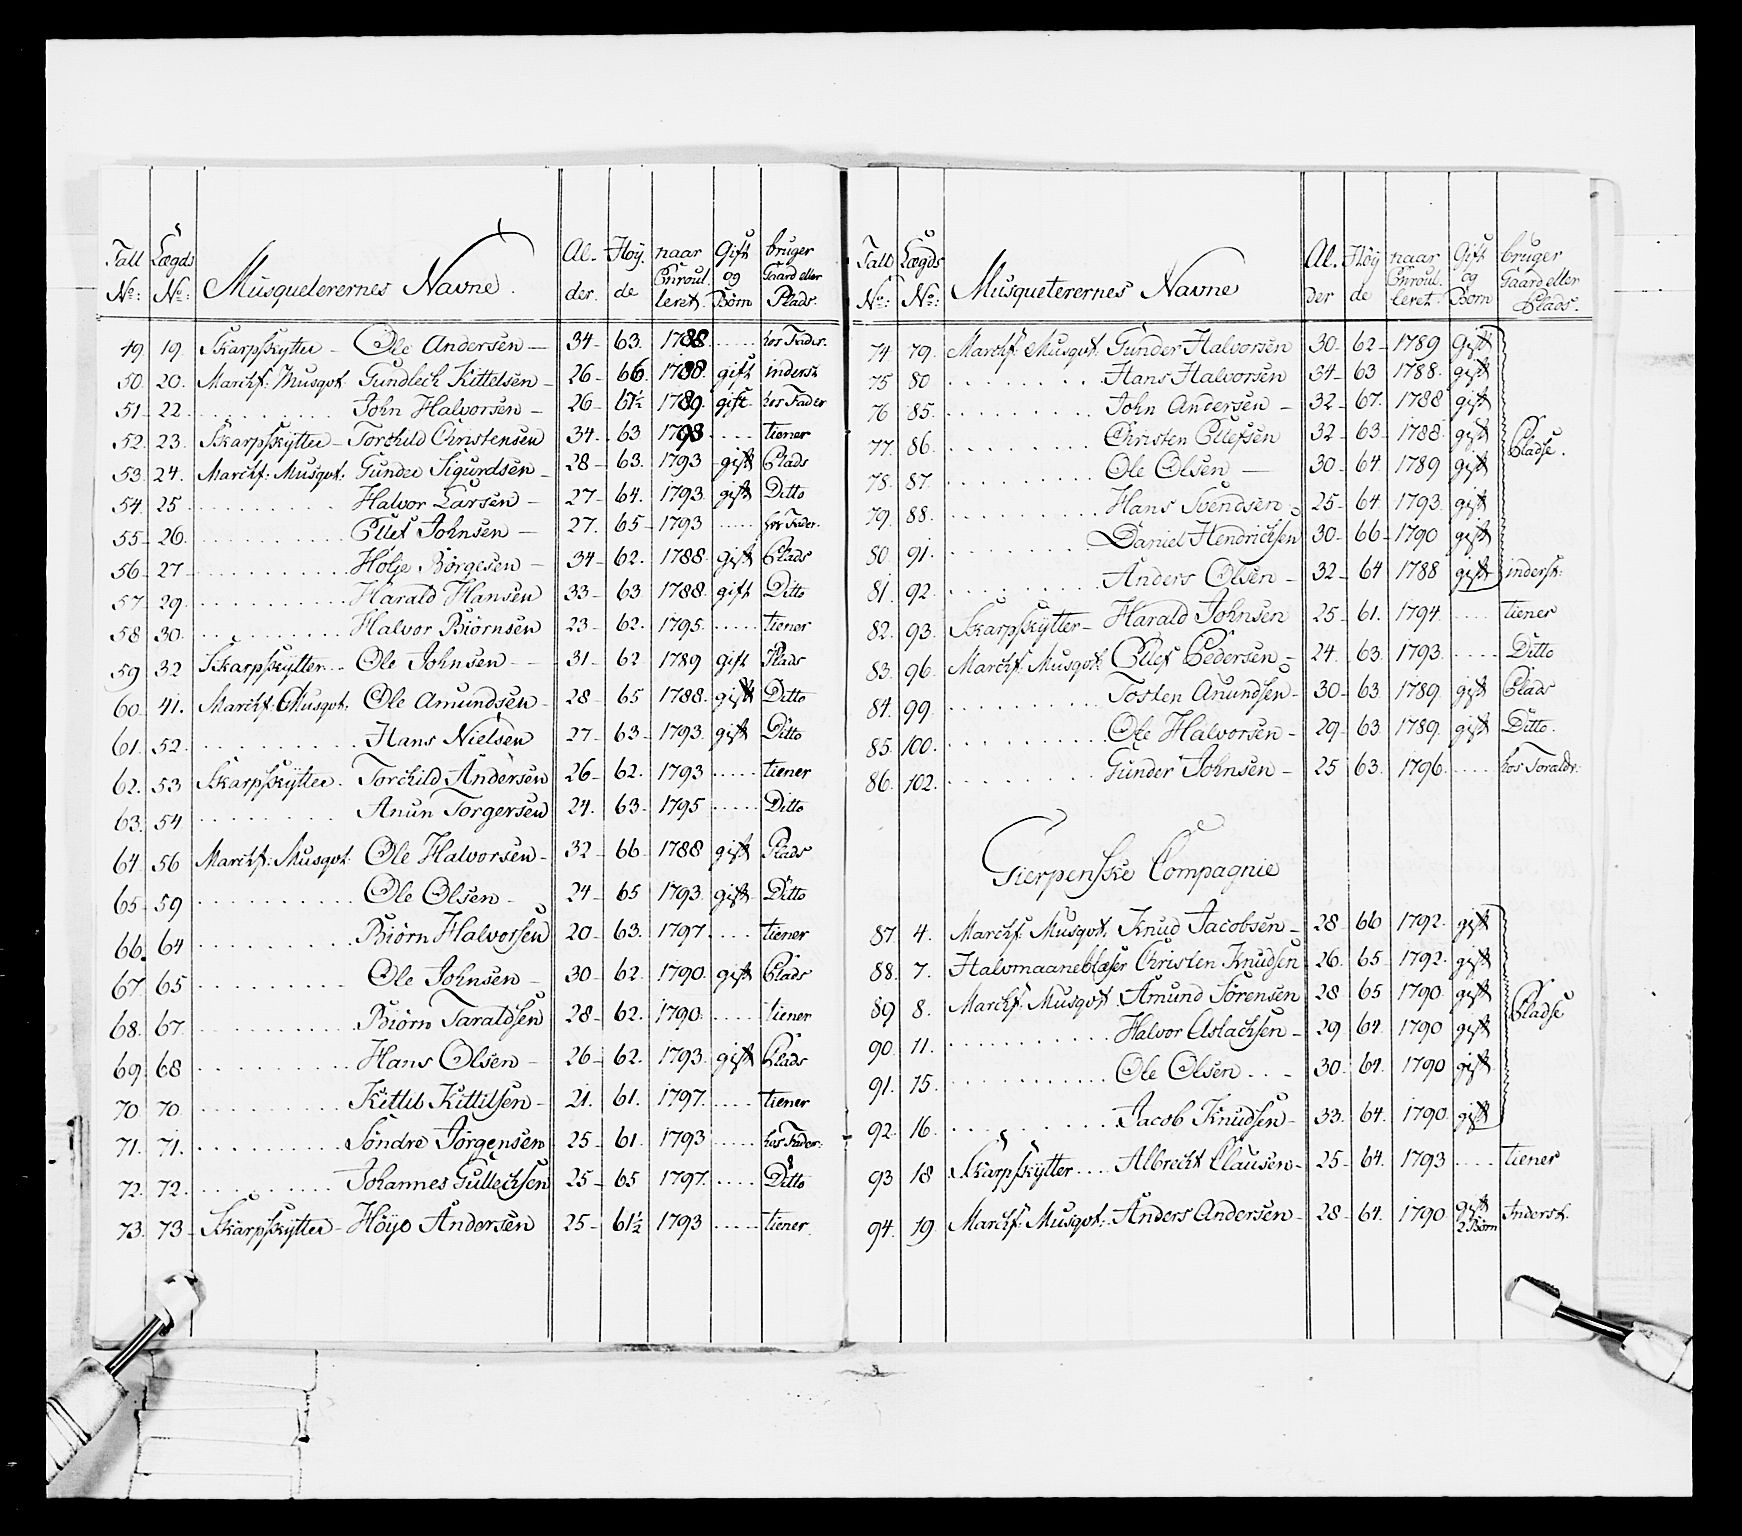 Tall Lægds Musqueterernes Navne. Al- Høy- naar Gift bruger
No: No: der. de Enroul- og Gaard eller
leret. Børn Plads.
49. 19. Skarpskytter - Ole Andersen - 34- 63. 1788. ..... hos Fader.
50. 20. Marchf: Musqvt. Gundlech Kittelsen - 26- 66. 1788. gift inderst
51. 22. .......... John Halvorsen - 26- 61½ 1789. gift. hos Fader
52. 23. Skarpskytter - Torchild Christensen 34. 63 1793. .... tiener
53. 24. Marchf: Musqvt. Gunder Sigurdsen - 28- 63. 1793 gift Plads
54. 25 .......... Halvor Larsen - 27- 64. 1793. gift Ditto
55. 26. .......... Ellef Johnsen - 27. 65- 1793 ..... hos Fader.
56. 27 .......... Holje Børgesen - 34- 62. 1788. gift Plads
57. 29. .......... Harald Hansen 33- 63 1788. gift Ditto
58. 30. .......... Halvor Biørnsen 23- 62. 1795. ..... tiener
59. 32 Skarpskytter .. Ole Johnsen - - 31- 62 1789 gift Plads
60. 41. Marchf: Musqvt. Ole Amundsen - 28- 65 1788. gift Ditto
61. 52. .......... Hans Nielsen 27- 63- 1793. gift Ditto
62. 53 Skarpskytter. Torchild Andersen 26- 62. 1793 ..... tiener
63. 54 .......... Anun Torgersen 24. 63. 1795 ..... Ditto
64 56 Marchf: Musqvt. Ole Halvorsen - 32- 66. 1788 gift Plads
65. 59 .......... Ole Olsen - 24- 65 1793. gift Ditto
66. 64 .......... Biørn Halvorsen 20- 63. 1797. .... tiener
67. 65 .......... Ole Johnsen - 30- 62. 1790. gift Plads
68. 67. .......... Biørn Taraldsen 28- 62. 1790. .... tiener
69. 68 .......... Hans Olsen - 26- 62. 1793. gift Plads
70 70. .......... Kittil Kittilsen - 21. 61. 1797. ..... tiener
71. 71. .......... Søndre Jørgensen 25- 61. 1793 ..... hos Fader.
72. 72. .......... Johannes Gullechsen 25- 65 1797. ..... Ditto
73. 73 - Skarpskytter - Høye Andersen 25- 61½ 1793 ..... tiener.
Tall Lægds Musqueterernes Navne Al. Høy naar Gift bruger
No: No: der de Enroul- og Gaard eller
leret. Børn Plads.
74 79. Marchf: Musqvt. Gunder Halvorsen 30- 62- 1789 Gift
75 80 .......... Hans Halvorsen 34- 63 1788. gift
76 85. .......... John Andersen - 32- 67. 1788 gift
77. 86. .......... Christen Ellefsen 32- 63- 1788. gift Pladse.
78. 87. .......... Ole Olsen - 30- 64. 1789 gift
79. 88. .......... Hans Svendsen - 25- 64 1793. gift
80 91. .......... Daniel Hendrichsen 30- 66- 1790 gift
81. 92. .......... Anders Olsen - 32- 64 1788 gift inderst:
82. 93. Skarpskytter - Harald Johnsen 25- 61. 1794. .... tiener
83. 96. Marchf: Musqvt. Ellef Pedersen - 24. 63. 1793. .... Ditto
84. 99. .......... Tosten Anundsen - 30- 63. 1789 gift Plads
85. 100. .......... Ole Halvorsen - 29- 63. 1789. gift Ditto.
86. 102. .......... Gunder Johnsen - 25 63. 1796. .... hos Foraldr.
Gierpenske Compagnie
87. 4. Marchf: Musqvt. Knud Jacobsen - 28- 66 1792. gift
88. 7. Halvmaaneblæser Christen Knudsen 26. 65- 1792. gift
89 8. Marchf: Musqvt Amund Sørensen 28 65 1790. gift Pladse
90. 11. .......... Halvor Aslachsen - 29 64. 1790 gift
91. 15. .......... Ole Olsen .. - 30. 64. 1790 gift
92. 16. .......... Jacob Knudsen - 33. 64. 1790 gift
93 18 Skarpskytter .... Albrecht Clausen - 25- 64. 1793 .... tiener
94. 19. Marchf: Musqvt. Anders Andersen - 28- 64. 1790 gift 2 Børn Inderst.